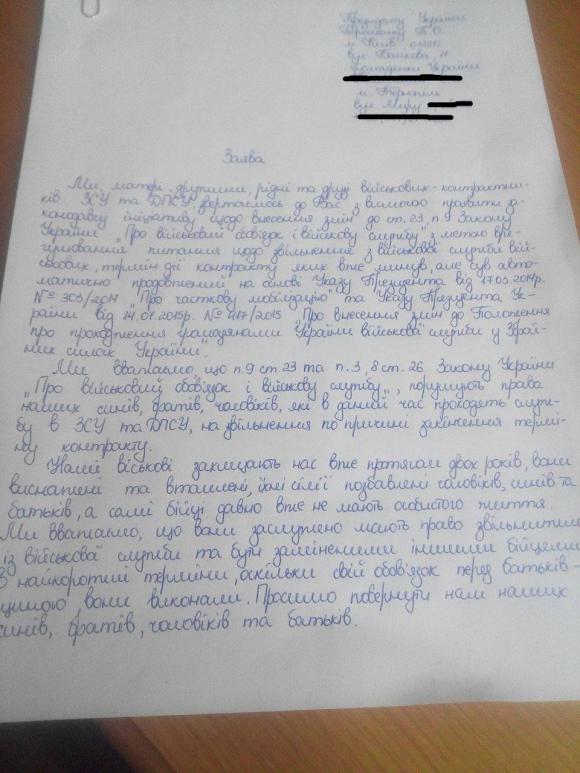 Президенту України
Порошенку П.О.
м. Київ 01220
вул. Банкова, 11
громадянки України
м. Тернопіль
вул. Миру
Заява
Ми, матері, дружини, рідні та друзі військових-контрактни-
ків ЗСУ та ДПСУ, звертаємось до Вас з вимогою проявити за-
конодавчу ініціативу щодо внесення змін до ст.23, п.9 Закону
України „Про військовий обов'язок і військову службу" з метою вре-
гулювання питання щодо звільнення з військової служби вій-
ськових, термін дії контракту яких вже минув, але був авто-
матично продовжений на основі Указу Президента від 17.03.2014р.
№ 303/2014 „Про часткову мобілізацію" та Указу Президента Ук-
раїни від 14.01.2015р. № 417/2015 „Про внесення змін до Положення
про проходження громадянами України військової служби у Зброй-
них силах України".
Ми вважаємо, що п.9 ст.23 та п.3, 8 ст.26 Закону України
„Про військовий обов'язок і військову службу", порушують права
наших синів, братів, чоловіків, які в даний час проходять служ-
бу в ЗСУ та ДПСУ, на звільнення по причині закінчення термі-
ну контракту.
Наші військові захищають нас вже протягом двох років, вони
виснажені та втомлені, їхні сім'ї позбавлені чоловіків, синів та
батьків, а самі бійці давно вже не мають особистого життя.
Ми вважаємо, що вони заслужено мають право звільнитись
із військової служби та бути заміненими іншими бійцями
в найкоротші терміни, оскільки свій обов'язок перед батьків-
щиною вони виконали. Просимо повернути нам наших
синів, братів, чоловіків та батьків.